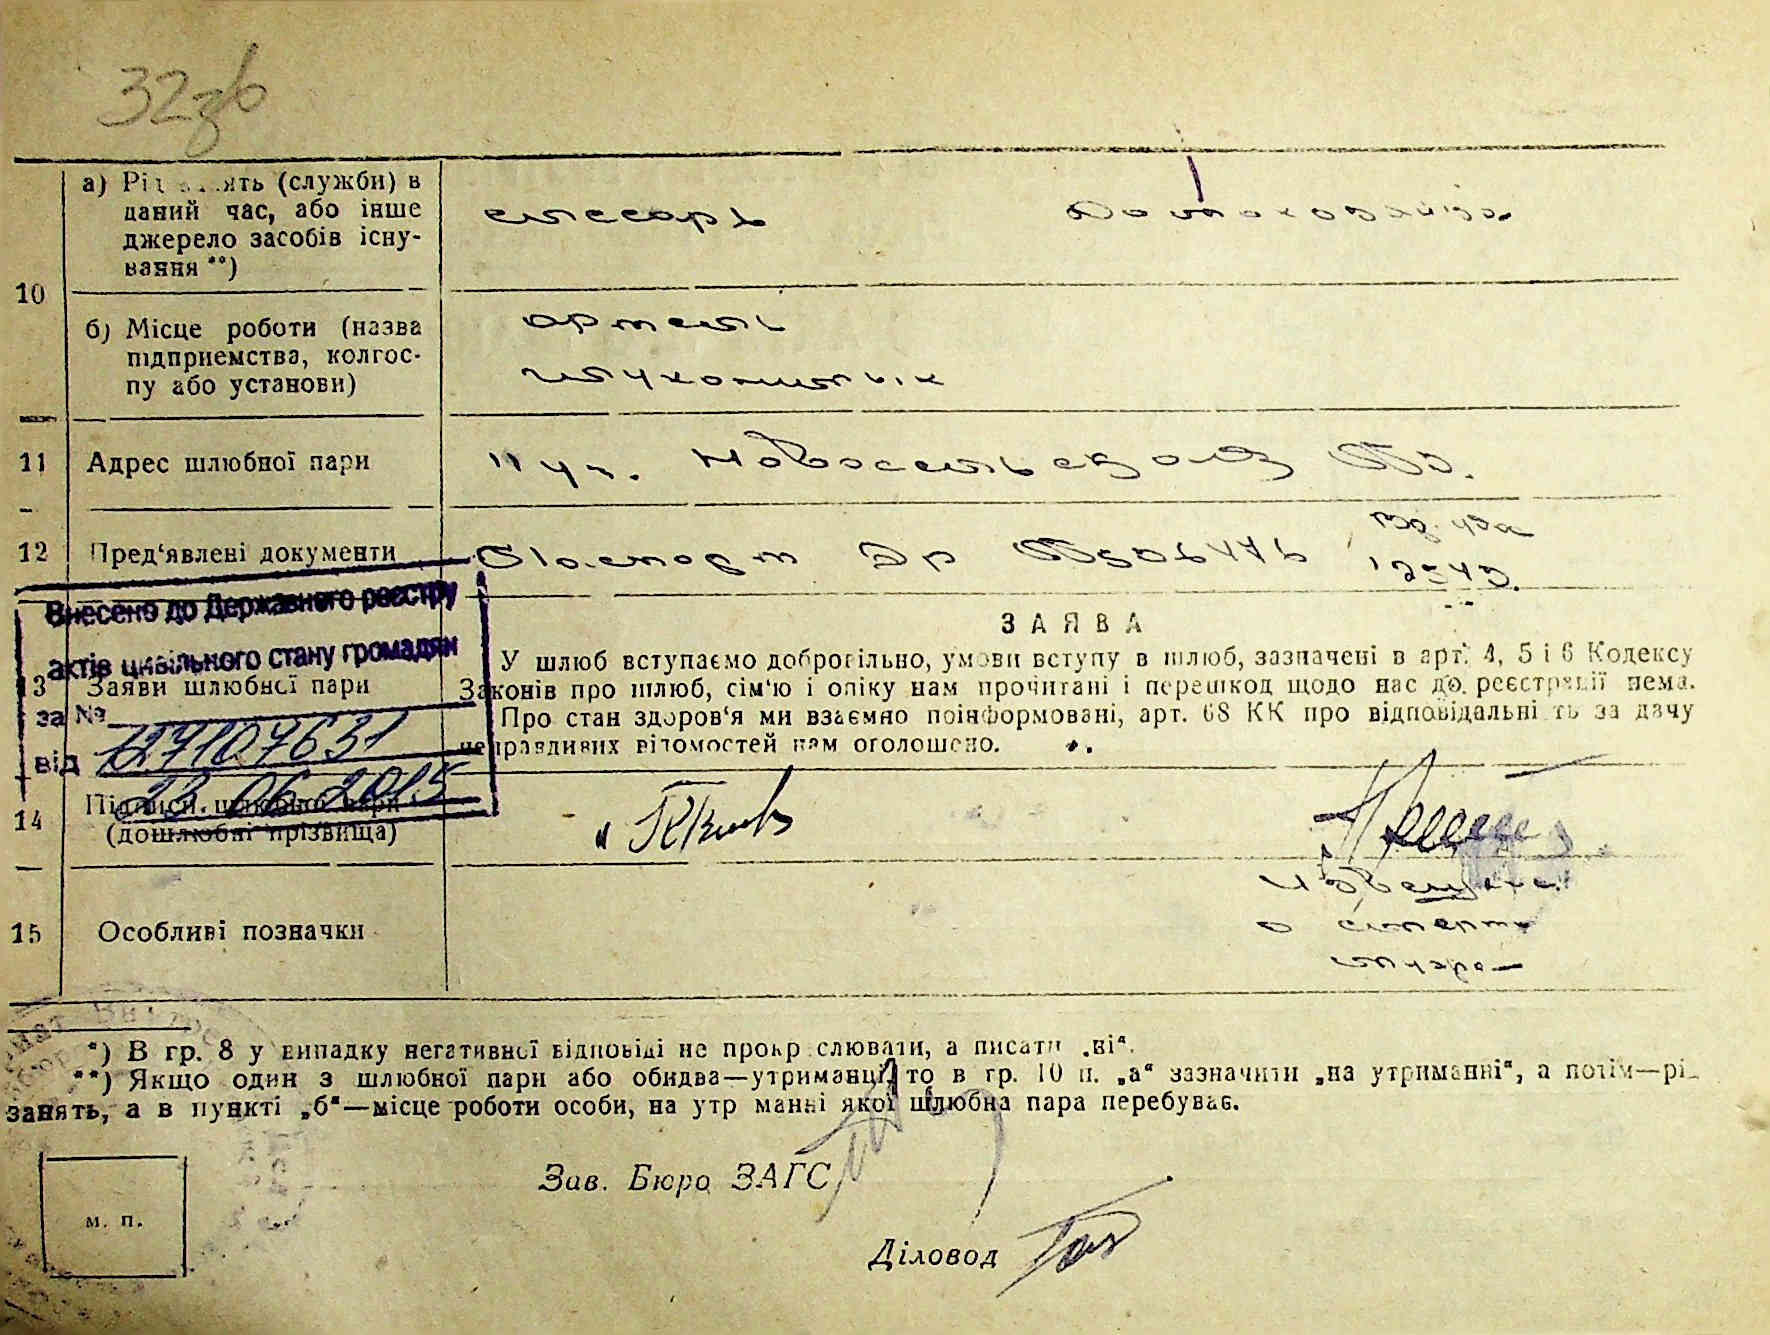 32зв
а) Рід занять (служби) в
даний час, або інше
джерело засобів існу-
вання **)
слесарь
Домохозяйка
10
б) Місце роботи (назва
підприемства, колгос-
пу або установи)
артель
11 Адрес шлюбної пари
Новосельской
12 Пред'явлені документи
Паспорт
Внесено до Державного реєстру
актів цивільного стану громадян
за №
127107631
від
23.06.2015
ЗАЯВА
13 Заяви шлюбної пари
У шлюб вступаємо добровільно, умови вступу в шлюб, зазначені в арт. 4, 5 і 6 Кодексу
Законів про шлюб, сім'ю і опіку нам прочитані і перешкод щодо нас до реєстрації нема.
Про стан здоров'я ми взаємно поінформовані, арт. 68 КК про відповідальність за дачу
неправдивих відомостей нам оголошено.
14 Підписи шлюбної пари
(дошлюбні прізвища)
15 Особливі позначки
Извещение
о смерти
мужа
*) В гр. 8 у випадку негативної відповіді не прокреслювати, а писати „ні“.
**) Якщо один з шлюбної пари або обидва—утриманці, то в гр. 10 п. „а“ зазначити „на утриманні“, а потім—рід
занять, а в пункті „б“—місце роботи особи, на утриманні якої шлюбна пара перебуває.
Зав. Бюро ЗАГС
м. п.
Діловод